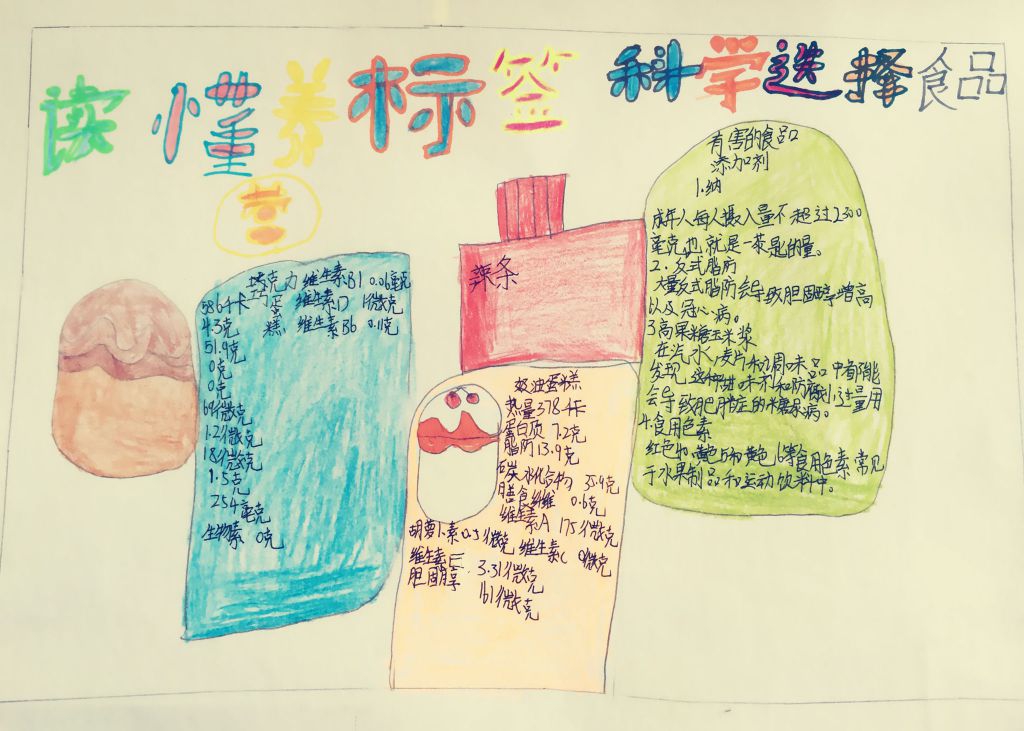 读懂养标签 科学选择食品
营
巧克力 维生素B1 0.06毫克
586千卡 蛋 维生素D 1微克
4.3克 糕 维生素B6 0.1克
51.9克
0克
0克
69微克
1.2微克
18微克
1.5克
254毫克
生物素 0克
辣条
奶油蛋糕
热量378千卡
蛋白质 7.2克
脂肪13.9克
碳水化合物 55.9克
膳食纤维 0.6克
维生素A 175微克
胡萝卜素0.5微克 维生素C 0微克
维生素E 3.31微克
胆固醇
161微克
有害的食品
添加剂
1.纳
成年人每人摄入量不超过2300
毫克也就是一茶匙的量。
2.反式脂肪
大量反式脂肪会导致胆固醇增高
以及冠心病。
3高果糖玉米浆
在汽水,麦片和调味品中都能
发现,这种甜味不和防腐剂过量用
会导致肥胖症的糖尿病。
4.食用色素
红色40,黄色5和黄色6等食用色素常见
于水果制品和运动饮料中。